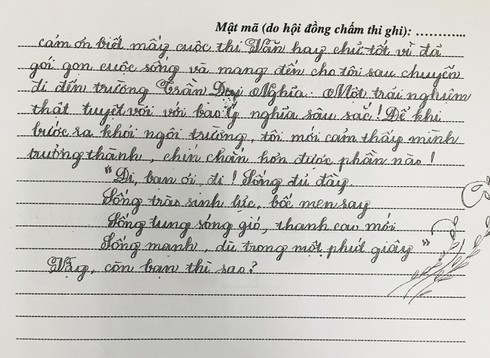 Mật mã (do hội đồng chấm thi ghi): ............
cám ơn biết mấy cuộc thi Văn hay chữ tốt vì đã
gói gọn cuộc sống và mang đến cho tôi sau chuyến
đi đến trường Trần Đại Nghĩa. Một trải nghiệm
thật tuyệt vời với bao ý nghĩa sâu sắc! Để khi
bước ra khỏi ngôi trường, tôi mới cảm thấy mình
trưởng thành, chín chắn hơn được phần nào!
"Đi, bạn ơi, đi! Sống đủ đầy
Sống trào sinh lực, bốc men say
Sống tung sóng gió, thanh cao mới
Sống mạnh, dù trong một phút giây"
Vậy, còn bạn thì sao?